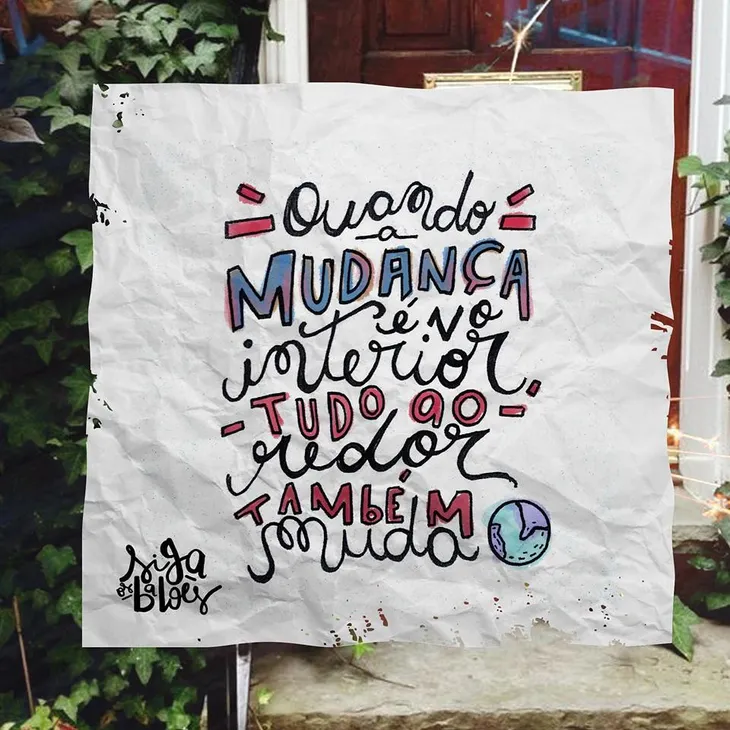 Quando
a
MUDANÇA
é no
interior,
TUDO ao
redor
TAMBÉM
muda
siga
os balões